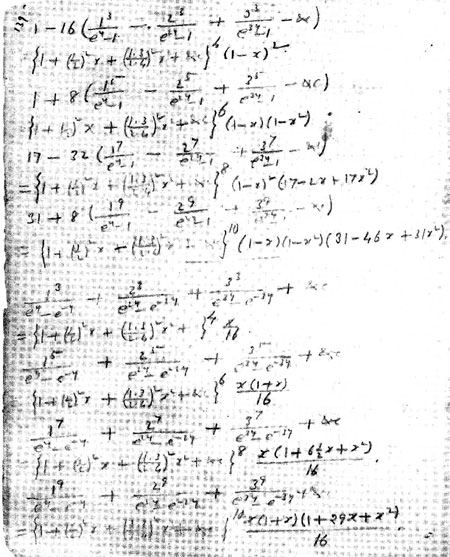 1 - 16 (1^3/(e^y-1) - 2^3/(e^{2y}-1) + 3^3/(e^{3y}-1) - &c)
{1 + (1/2)^2 x + (1·3/2·4)^2 x^2 + &c}^4 (1-x)^2
1 + 8 (1^5/(e^y-1) - 2^5/(e^{2y}-1) + 3^5/(e^{3y}-1) - &c)
{1 + (1/2)^2 x + (1·3/2·4)^2 x^2 + &c}^6 (1-x)(1-x^2)
17 - 32 (1^7/(e^y-1) - 2^7/(e^{2y}-1) + 3^7/(e^{3y}-1) - &c)
= {1 + (1/2)^2 x + (1·3/2·4)^2 x^2 + &c}^8 (1-x)^2 (17-2x+17x^2)
31 + 8 (1^9/(e^y-1) - 2^9/(e^{2y}-1) + 3^9/(e^{3y}-1) - &c)
= {1 + (1/2)^2 x + (1·3/2·4)^2 x &c}^10 (1-x)(1-x^2)(31-46x+31x^2).
1^3/(e^y-e^{-y}) + 2^3/(e^{2y}-e^{-2y}) + 3^3/(e^{3y}-e^{-3y}) + &c
= {1 + (1/2)^2 x + (1·3/2·4)^2 x^2 + }^4 x/16.
1^5/(e^y-e^{-y}) + 2^5/(e^{2y}-e^{-2y}) + 3^5/(e^{3y}-e^{-3y}) + &c
{1 + (1/2)^2 x + (1·3/2·4)^2 x^2 + &c}^6 x(1+x)/16
1^7/(e^y-e^{-y}) + 2^7/(e^{2y}-e^{-2y}) + 3^7/(e^{3y}-e^{-3y}) + &c
= {1 + (1/2)^2 x + (1·3/2·4)^2 x^2 + &c}^8 x(1+6½x+x^2)/16.
1^9/(e^y-e^{-y}) + 2^9/(e^{2y}-e^{-2y}) + 3^9/(e^{3y}-e^{-3y}) + &c
= {1 + (1/2)^2 x + (1·3/2·4)^2 x + &c}^10 x(1+x)(1+29x+x^2)/16